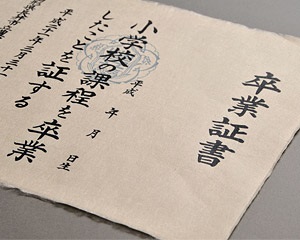 卒業証書
平成 年 月 日生
小学校の課程を卒業
したことを証する
平成二十一年三月二十一